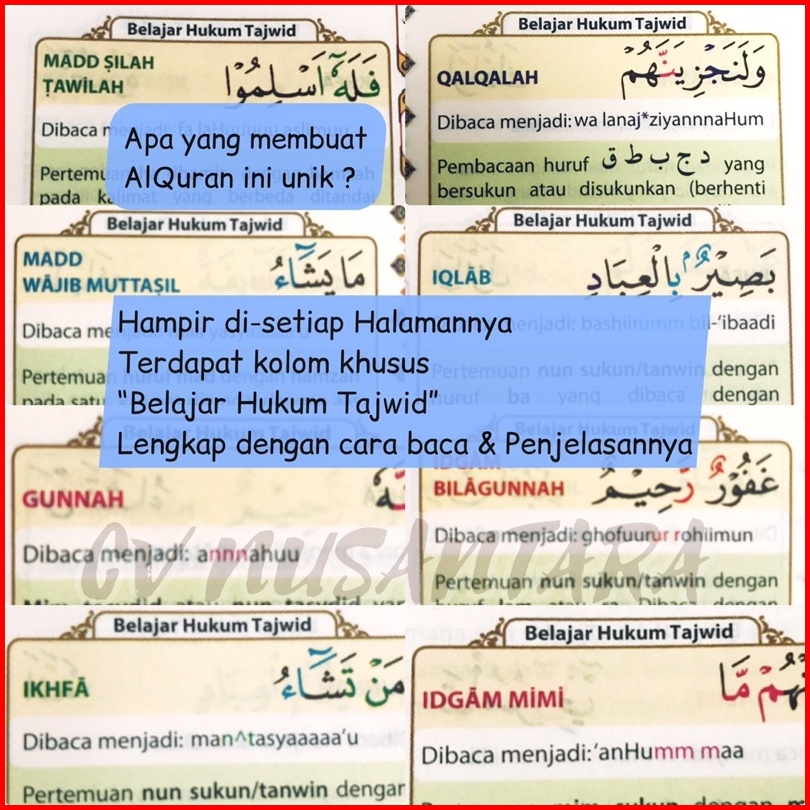 Belajar Hukum Tajwid
MADD ṢILAH
ṬAWĪLAH
فَلَهُٓ اَسْلِمُوْا
Dibaca menjadi: fa laHuuuuu aslimuu
Apa yang membuat
AlQuran ini unik ?
Pertemuan
pada
kalimat yang berbeda ditandai
Belajar Hukum Tajwid
QALQALAH
وَلَنَجْزِيَنَّهُمْ
Dibaca menjadi: wa lanaj*ziyannnaHum
Pembacaan huruf د ج ب ط ق yang
bersukun atau disukunkan (berhenti
Belajar Hukum Tajwid
MADD
WĀJIB MUTTAṢIL
مَا يَشَاۤءُ
Dibaca menjadi:
Pertemuan huruf mad dengan hamzah
pada satu
Belajar Hukum Tajwid
IQLĀB
بَصِيْرٌۢ بِالْعِبَادِ
Dibaca menjadi: bashiirumm bil-‘ibaadi
Pertemuan nun sukun/tanwin dengan
huruf ba yang dibaca dengan
Hampir di-setiap Halamannya
Terdapat kolom khusus
“Belajar Hukum Tajwid”
Lengkap dengan cara baca & Penjelasannya
Belajar Hukum Tajwid
GUNNAH
Dibaca menjadi: annnahuu
Belajar Hukum Tajwid
IDGĀM
BILĀGUNNAH
غَفُوْرٌ رَّحِيْمٌ
Dibaca menjadi: ghofuurur rohiimun
Pertemuan nun sukun/tanwin dengan
CV NUSANTARA
Belajar Hukum Tajwid
IKHFĀ
مَنْ تَشَاۤءُ
Dibaca menjadi: man^tasyaaaaa’u
Pertemuan nun sukun/tanwin dengan
Belajar Hukum Tajwid
IDGĀM MIMI
هُمْ مَّا
Dibaca menjadi: ’anHumm maa